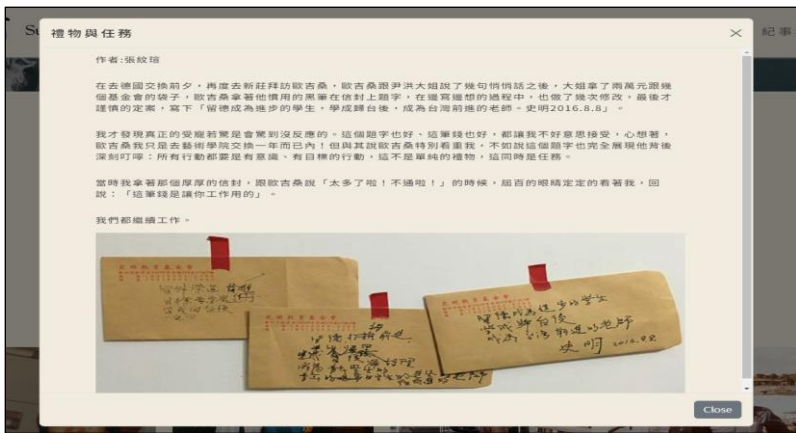 Su
紀事
禮物與任務
作者:張紋瑄
在去德國交換前夕，再度去新莊拜訪歐吉桑，歐吉桑跟尹洪大姐說了幾句悄悄話之後，大姐拿了兩萬元跟幾
個基金會的袋子，歐吉桑拿著他慣用的黑筆在信封上題字，在邊寫邊想的過程中，也做了幾次修改，最後才
謹慎的定案，寫下「留德成為進步的學生，學成歸台後，成為台灣前進的老師。史明2016.8.8」。
我才發現真正的受寵若驚是會驚到沒反應的。這個題字也好、這筆錢也好，都讓我不好意思接受，心想著，
歐吉桑我只是去藝術學院交換一年而已內！但與其說歐吉桑特別看重我，不如說這個題字也完全展現他背後
深刻叮嚀：所有行動都要是有意識、有目標的行動，這不是單純的禮物，這同時是任務。
當時我拿著那個厚厚的信封，跟歐吉桑說「太多了啦！不通啦！」的時候，屆百的眼睛定定的看著我，回
說：「這筆錢是讓你工作用的」。
我們都繼續工作。
史明教育基金會
史明教育基金會
史明教育基金會
留德成為進步的學生
學成歸台後
成為台灣前進的老師
史明 2016.8.8
Close